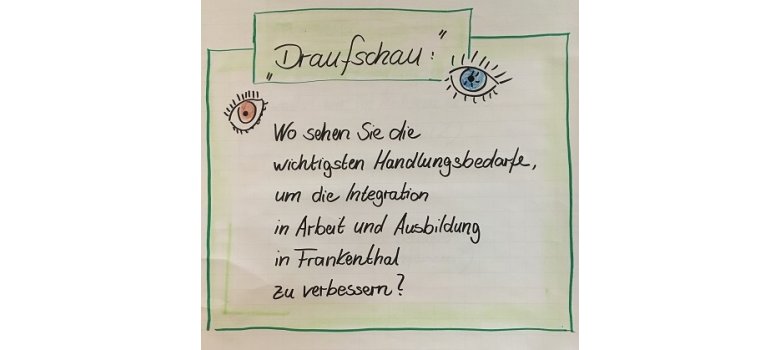 „Draufschau:"
Wo sehen Sie die
wichtigsten Handlungsbedarfe,
um die Integration
in Arbeit und Ausbildung
in Frankenthal
zu verbessern?